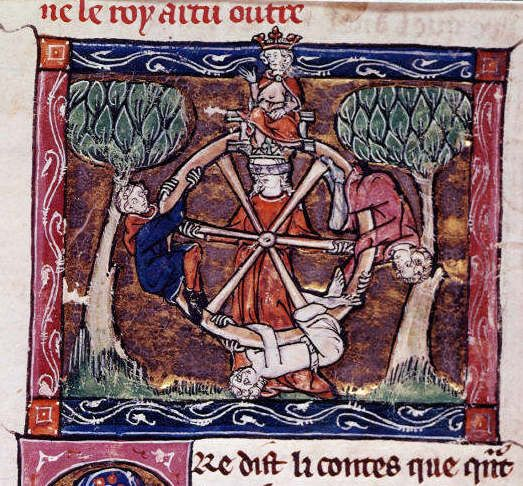 ne le roy artu outre
Re dist li contes que qnt